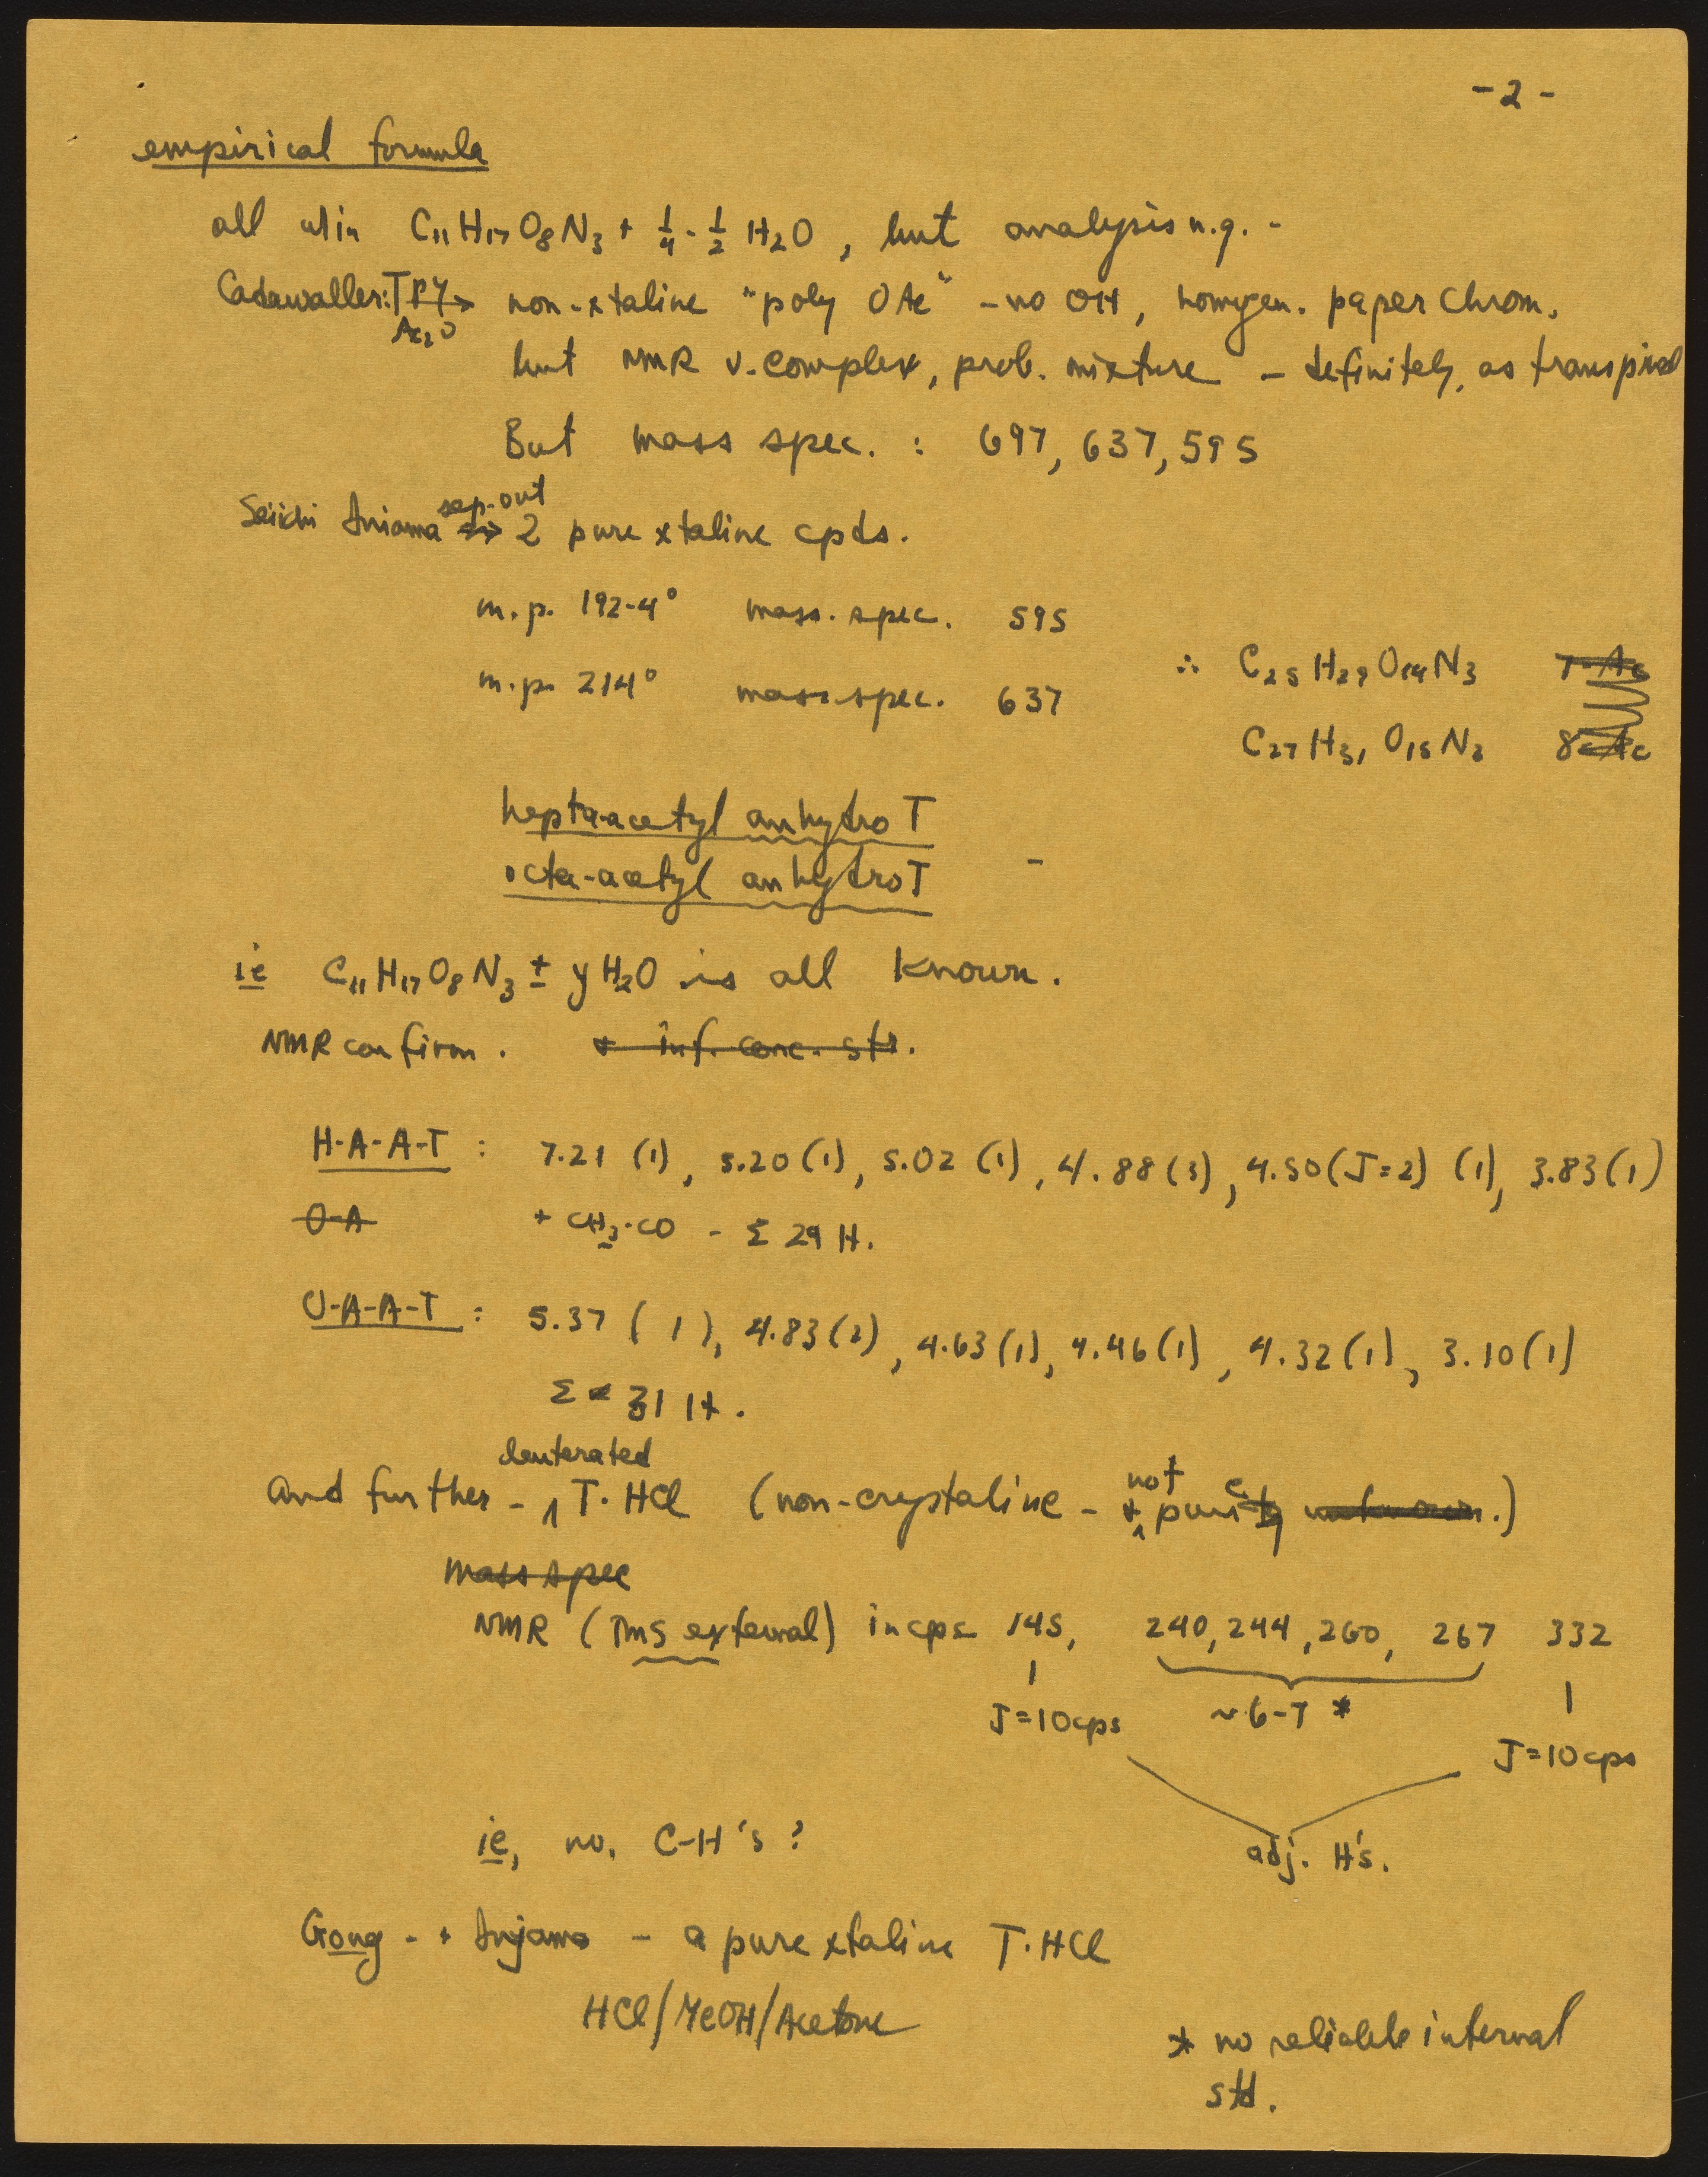 - 2 -
empirical formula
all w/in C11H17O8N3 + 1/4 - 1/2 H2O, but analysis n.g. -
Cadawaller: T Py → non-xtaline "poly OAc" - no OH, homogen. paper chrom.
Ac2O
but NMR v. complex, prob. mixture - definitely, as transpired
But mass spec. : 697, 637, 595
sep. out
Seiichi → 2 pure xtaline cpds.
m.p. 192-4° mass. spec. 595
∴ C25H29O14N3 7-Ac
m.p. 214° mass spec. 637
C27H31O15N3 8-Ac
hepta-acetyl anhydro T
octa-acetyl anhydro T
ie C11H17O8N3 ± y H2O is all known.
NMR confirm. + inf. conc. str.
H-A-A-T : 7.21 (1), 5.20 (1), 5.02 (1), 4.88 (3), 4.50 (J=2) (1), 3.83 (1)
O-A + CH3·CO - Σ 29 H.
O-A-A-T : 5.37 (1), 4.83 (2), 4.63 (1), 4.46 (1), 4.32 (1), 3.10 (1)
Σ 31 H.
deuterated
and further - ∧ T·HCl (non-crystaline - + not pure unknown.)
mass spec
NMR (TMS external) in cps 145, 240, 244, 260, 267 332
J=10cps ~6-7 *
J=10cps
adj. H's.
ie, no. C-H's?
Gong - + - a pure xtaline T·HCl
HCl/MeOH/Acetone
* no reliable internal
std.